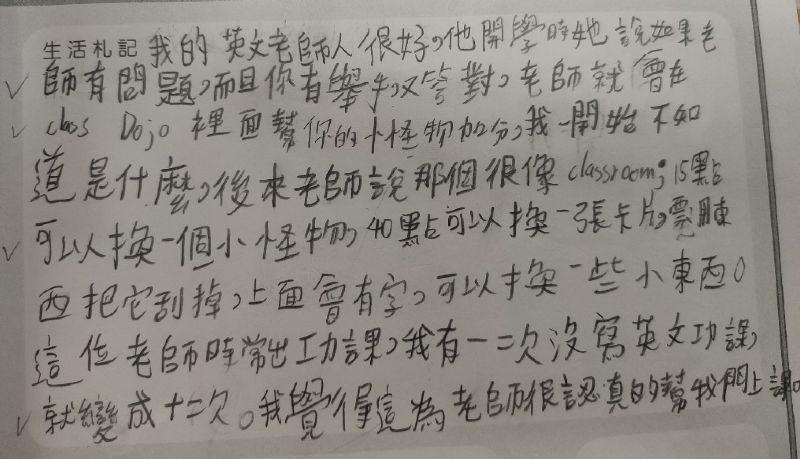 生活札記 我的英文老師人很好,他開學時她說如果老
師有問題,而且你有舉手,又答對,老師就會在
class Dojo 裡面幫你的小怪物加分,我一開始不知
道是什麼,後來老師說那個很像 classroom;15點
可以換一個小怪物,40點可以換一張卡片,需用東
西把它刮掉,上面會有字,可以換一些小東西。
這位老師時常出功課,我有一次沒寫英文功課,
就變成十二次。我覺得這為老師很認真的幫我們上課。